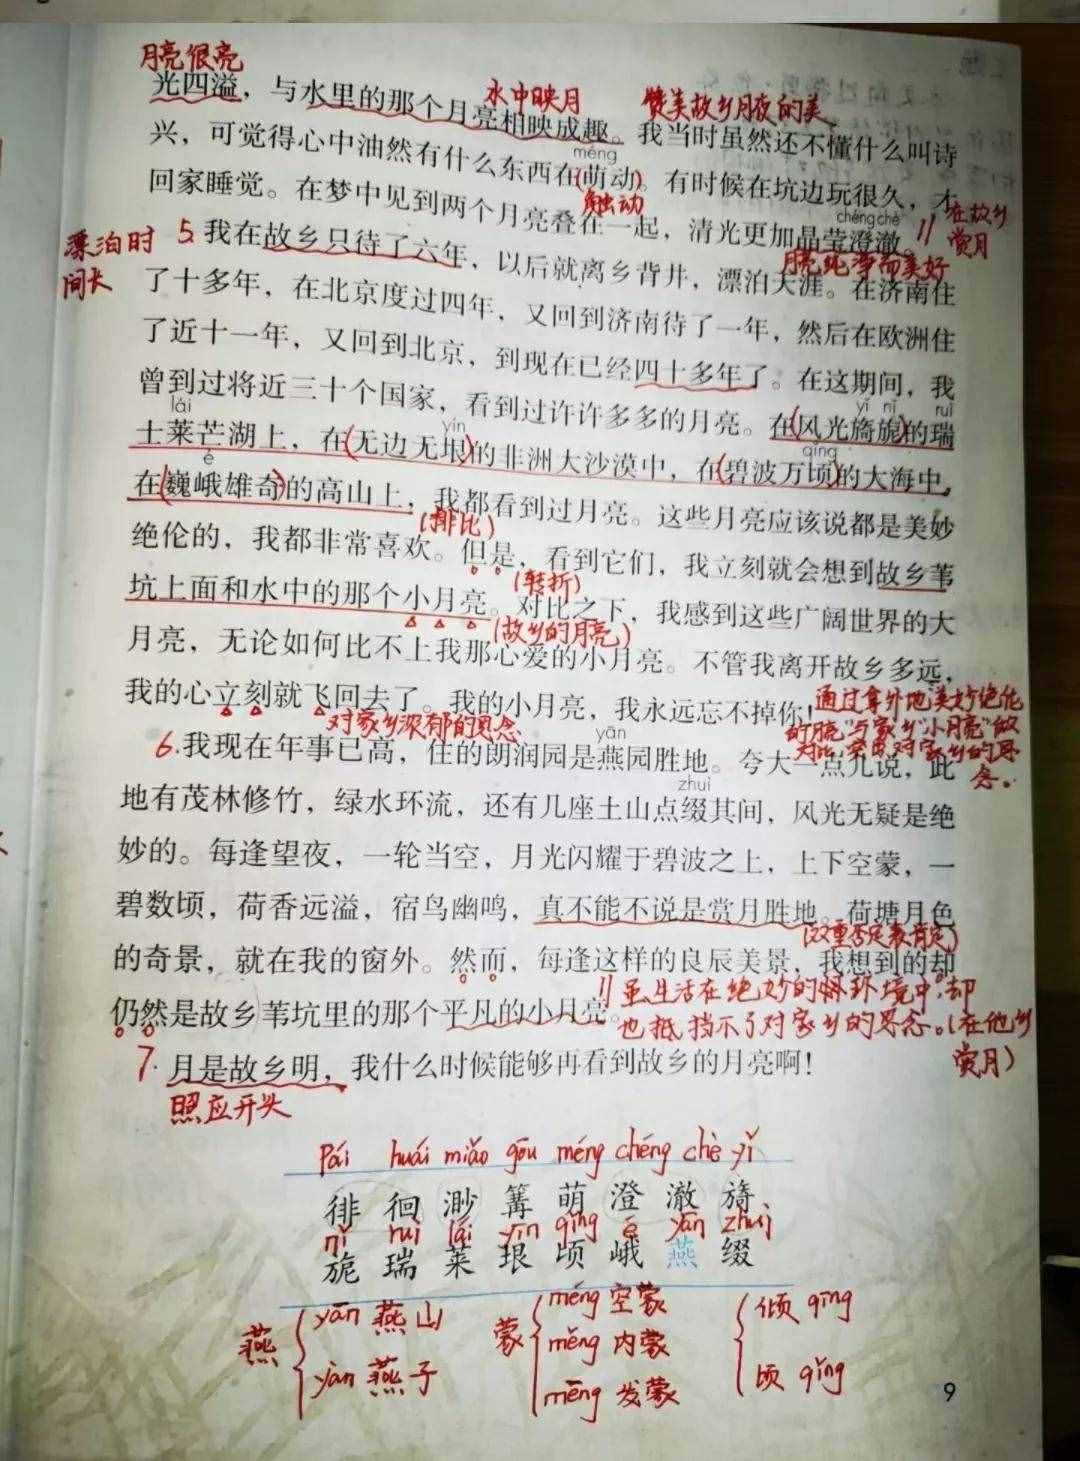 月亮很亮
光四溢，与水里的那个月亮相映成趣。我当时虽然还不懂什么叫诗
水中映月
赞美故乡月夜的美
兴，可觉得心中油然有什么东西在萌动。有时候在坑边玩很久，才
méng
(萌动)
触动
回家睡觉。在梦中见到两个月亮叠在一起，清光更加晶莹澄澈。
chéng chè
//在故乡赏月
月亮纯净而美好
漂泊时间长
5.我在故乡只待了六年，以后就离乡背井，漂泊天涯。在济南住
了十多年，在北京度过四年，又回到济南待了一年，然后在欧洲住
了近十一年，又回到北京，到现在已经四十多年了。在这期间，我
曾到过将近三十个国家，看到过许许多多的月亮。在(风光旖旎)的瑞
lái
yǐ nǐ
ruì
士莱芒湖上，在(无边无垠)的非洲大沙漠中，在(碧波万顷)的大海中，
yín
qǐng
é
在(巍峨雄奇)的高山上，我都看到过月亮。这些月亮应该说都是美妙
(排比)
绝伦的，我都非常喜欢。但是，看到它们，我立刻就会想到故乡苇
(转折)
坑上面和水中的那个小月亮。对比之下，我感到这些广阔世界的大
(故乡的月亮)
月亮，无论如何比不上我那心爱的小月亮。不管我离开故乡多远，
我的心立刻就飞回去了。我的小月亮，我永远忘不掉你！
对家乡浓郁的思念
通过拿外地美妙绝伦
的"月亮"与家乡"小月亮"做
对比，突出对家乡的思
念。
6.我现在年事已高，住的朗润园是燕园胜地。夸大一点儿说，此
yān
地有茂林修竹，绿水环流，还有几座土山点缀其间，风光无疑是绝
zhuì
妙的。每逢望夜，一轮当空，月光闪耀于碧波之上，上下空蒙，一
碧数顷，荷香远溢，宿鸟幽鸣，真不能不说是赏月胜地。荷塘月色
(双重否定表肯定)
的奇景，就在我的窗外。然而，每逢这样的良辰美景，我想到的却
仍然是故乡苇坑里的那个平凡的小月亮。
//虽生活在绝妙的环境中，却
也抵挡不了对家乡的思念。(在他乡
赏月)
7.月是故乡明，我什么时候能够再看到故乡的月亮啊！
照应开头
pái huái miǎo gōu méng chéng chè yǐ
徘 徊 渺 篝 萌 澄 澈 旖
nǐ ruì lái yín qǐng é yān zhuì
旎 瑞 莱 垠 顷 峨 燕 缀
燕 yān 燕山
yàn 燕子
蒙 méng 空蒙
měng 内蒙
mēng 发蒙
倾 qīng
顷 qǐng
9